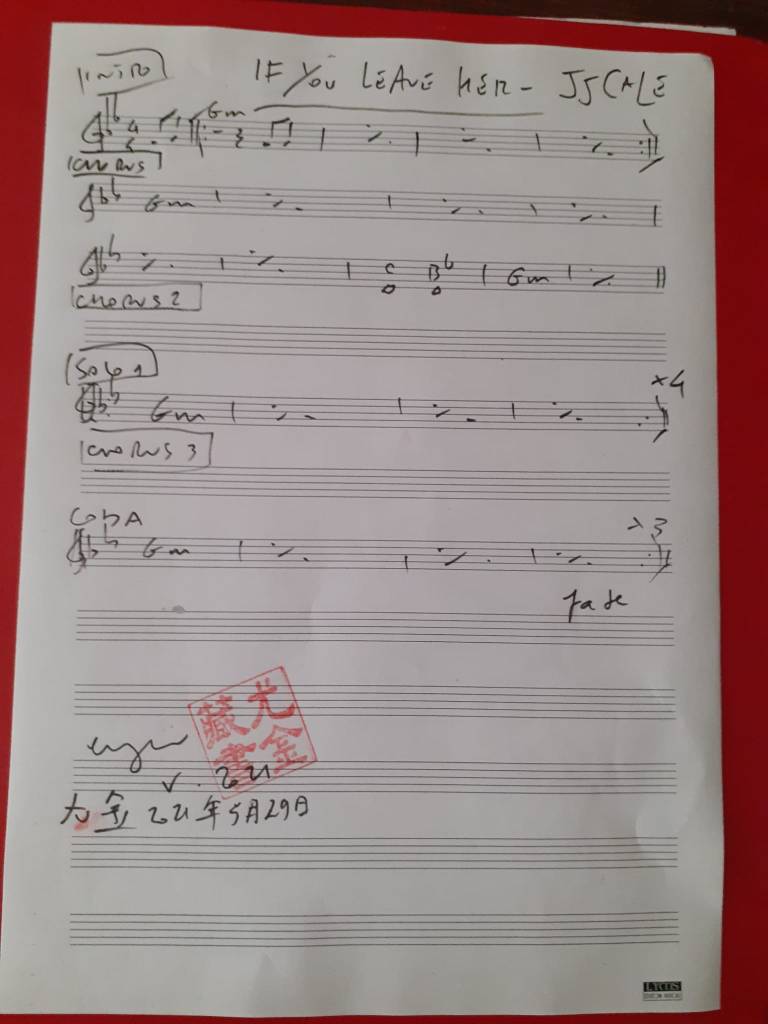 INTRO
IF YOU LEAVE HER - JJ CALE
Gm
CHORUS
Gm
C Bb Gm
CHORUS 2
SOLO 1
×4
Gm
CHORUS 3
CODA
×3
Gm
fade
尤金
藏書
V. 2021
尤金 2021年5月29日
LYCTIS